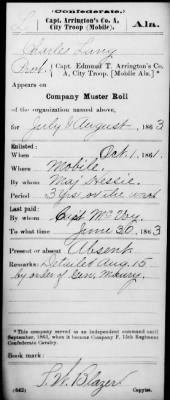 (Confederate.)
Capt. Arrington's Co. A,
City Troop (Mobile). Ala.
Charles Lang
Pvt., Capt. Edmund T. Arrington's Co.
A, City Troop. [Mobile Ala.]*
Appears on
Company Muster Roll
of the organization named above,
for July & August, 1863
Enlisted:
When Oct. 1, 1861.
Where Mobile.
By whom Maj. Hessie
Period 3 yrs or the war
Last paid:
By whom Capt. McVoy
To what time June 30, 1863
Present or absent Absent
Remarks: Detailed Aug. 15
by order of Gen. Maury.
*This company served as an independent command until
September, 1863, when it became Company F, 15th Regiment
Confederate Cavalry.
Book mark:
(642) S. W. Blazer
Copyist.